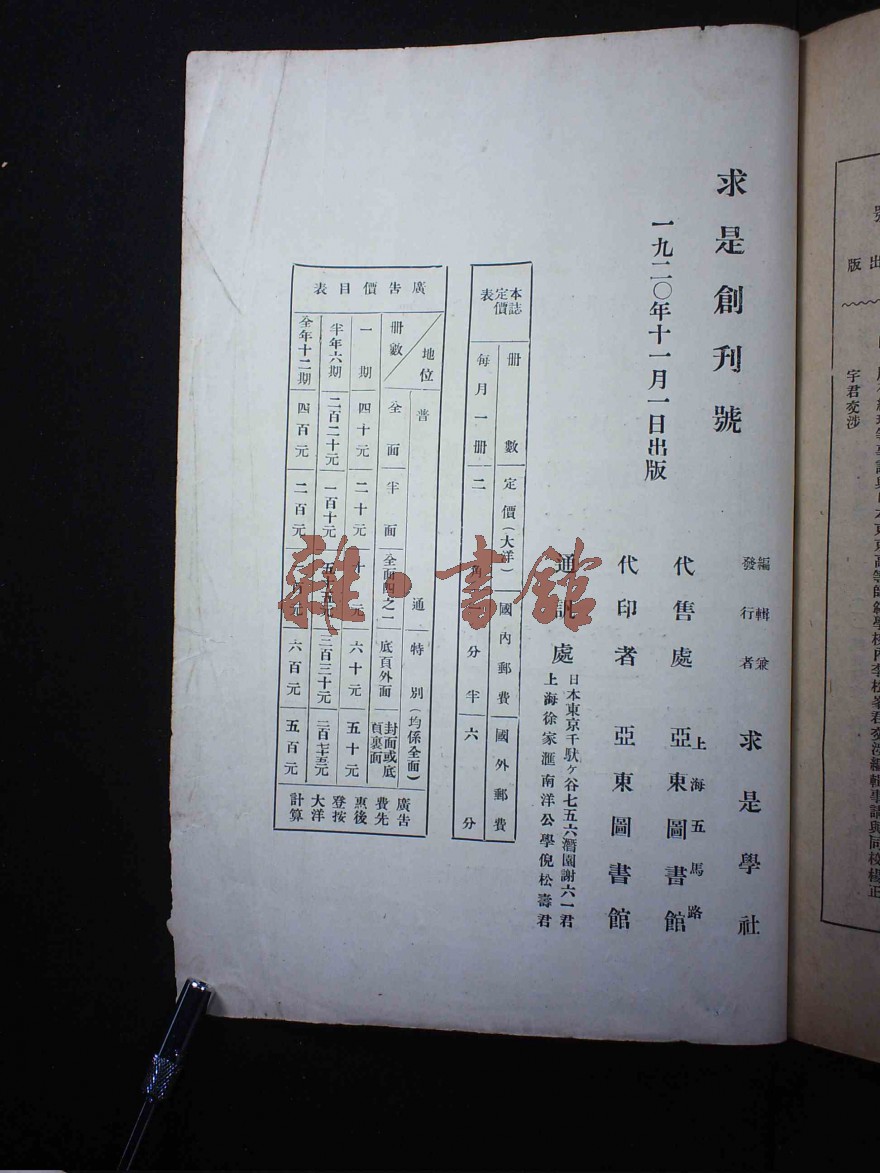 求是創刊號
一九二〇年十一月一日出版
編輯兼
發行者
求是學社
代售處
上海五馬路
亞東圖書館
代印者 亞東圖書館
通訊處
日本東京千馱ヶ谷七五六潛園謝六一君
上海徐家滙南洋公學倪松壽君
本誌
定價
表
册數 定價(大洋) 國內郵費 國外郵費
每月一册 二角 分半 六分
廣告價目表
地位
册數
普通
特別(均係全面)
全面 半面 全面四之一 底頁外面 封面或底頁裏面
一期 四十元 二十元 十元 六十元 五十元
半年六期 二百二十元 一百十元 五十五元 三百三十元 二百七十五元
全年十二期 四百元 二百元 百元 六百元 五百元
廣告
費先
惠後
登按
大洋
計算
雜·書館
號
出版
宇君交涉
東京高等師範學校內李松峯君交涉編輯事請與同校楊正